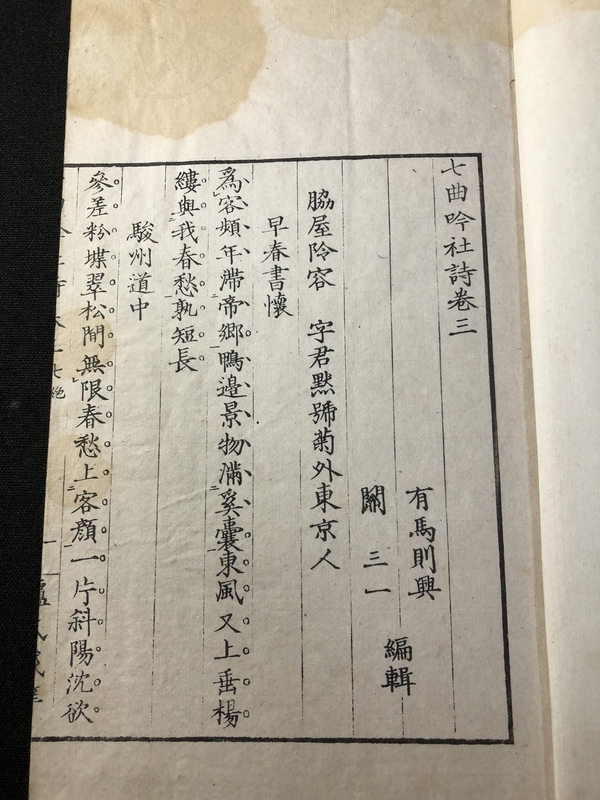 七曲吟社詩卷三
有馬則興
關三一
編輯
脇屋阾容 字君默號菊外東京人
早春書懷
爲客頻年滯帝鄉鴨邉景物滿奚囊東風又上垂楊
縷與我春愁孰短長
駿州道中
參差粉堞翠松間無限春愁上客顏一片斜陽沈欲
七絕